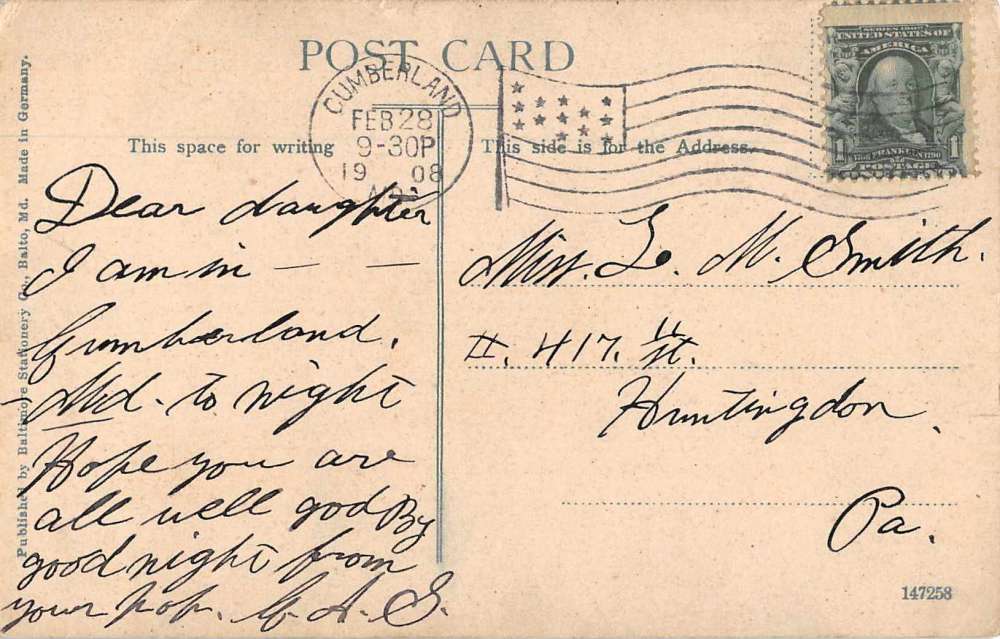 POST CARD
CUMBERLAND
FEB 28
9-30P
19 08
MD.
SERIES 1902
UNITED STATES OF
AMERICA
1706 FRANKLIN 1790
1 1
POSTAGE
This space for writing
This side is for the Address.
Dear daughter
I am in — —
Cumberland.
Md. to night
Hope you are
all well god By
good night from
your Pop.
Miss. L. M. Smith.
417. St.
Huntingdon.
Pa.
Published by Baltimore Stationery Co., Balto, Md. Made in Germany.
147258